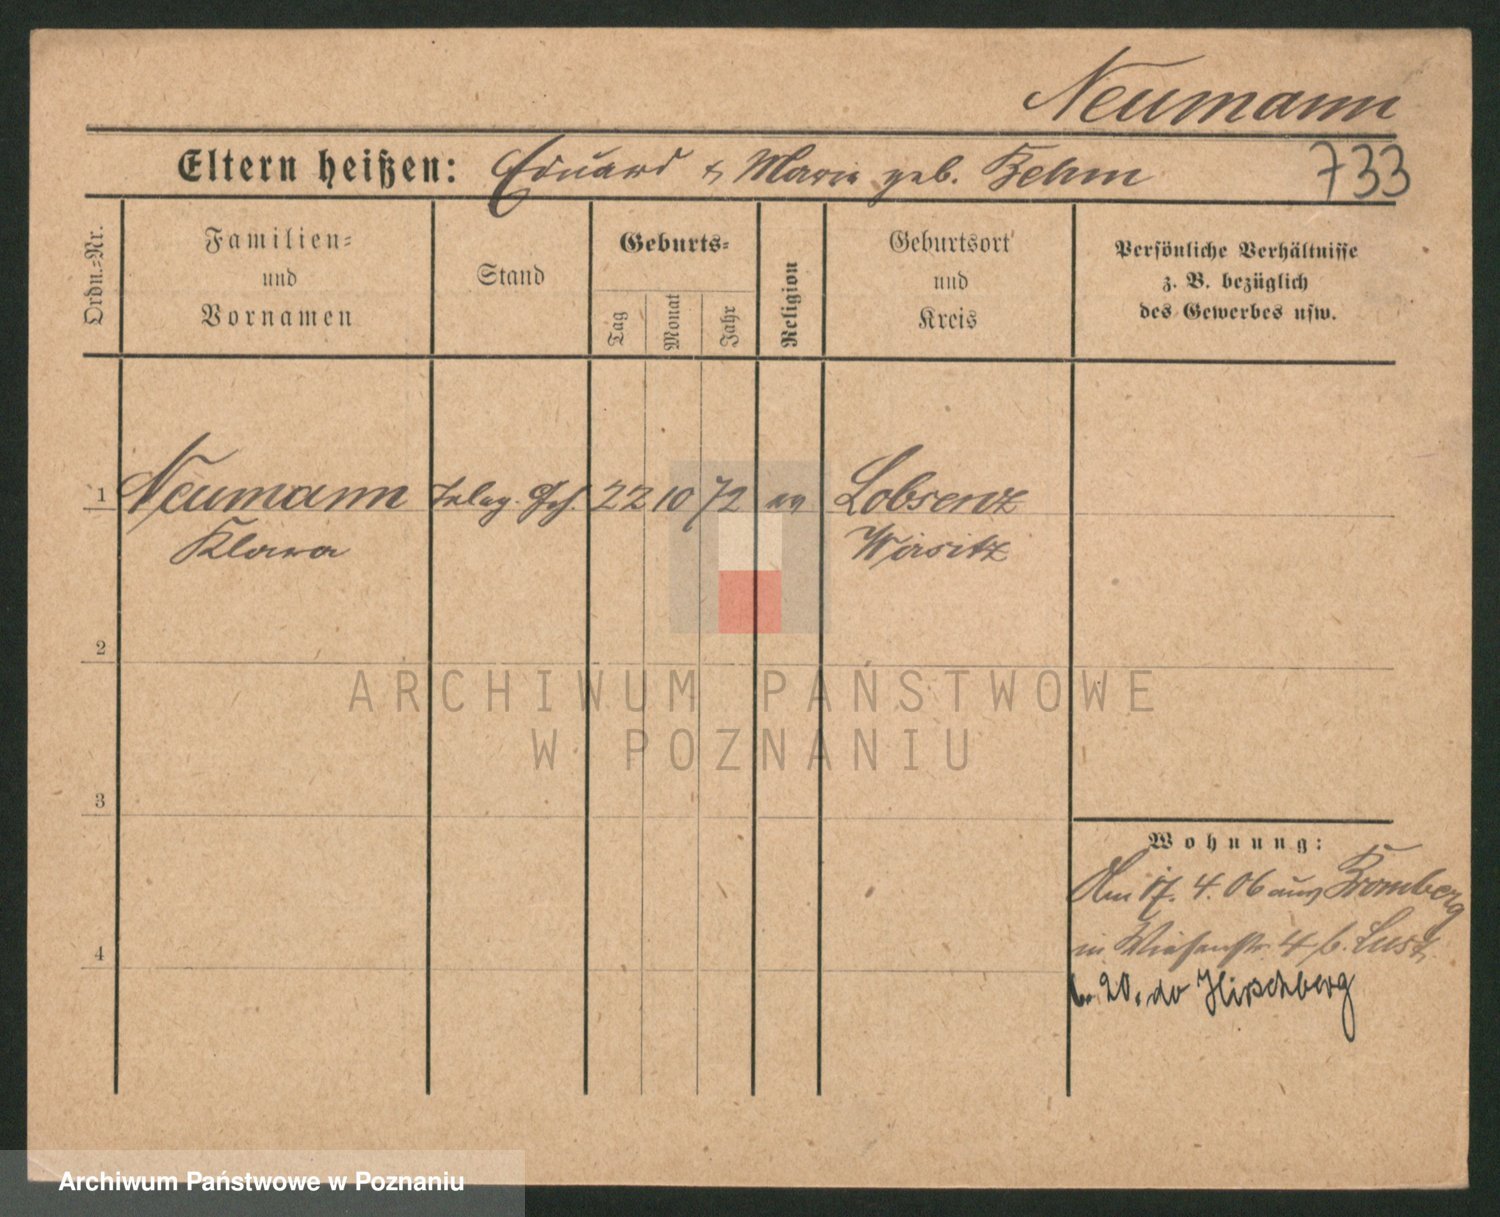 Neumann
Eltern heißen: Eduard & Marie geb. Behm 733
Ordn.-Nr.
Familien-
und
Vornamen
Stand
Geburts-
Tag
Monat
Jahr
Religion
Geburtsort
und
Kreis
Persönliche Verhältnisse
z. B. bezüglich
des Gewerbes usw.
1 Neumann Teleg. Geh. 22 10 72 ev Lobsenz
Klara Wirsitz
2
ARCHIWUM PAŃSTWOWE
W POZNANIU
3
Wohnung:
Am 17. 4. 06 aus Bromberg
in Wiesenstr. 4 b.
4
20. do Hirschberg
Archiwum Państwowe w Poznaniu